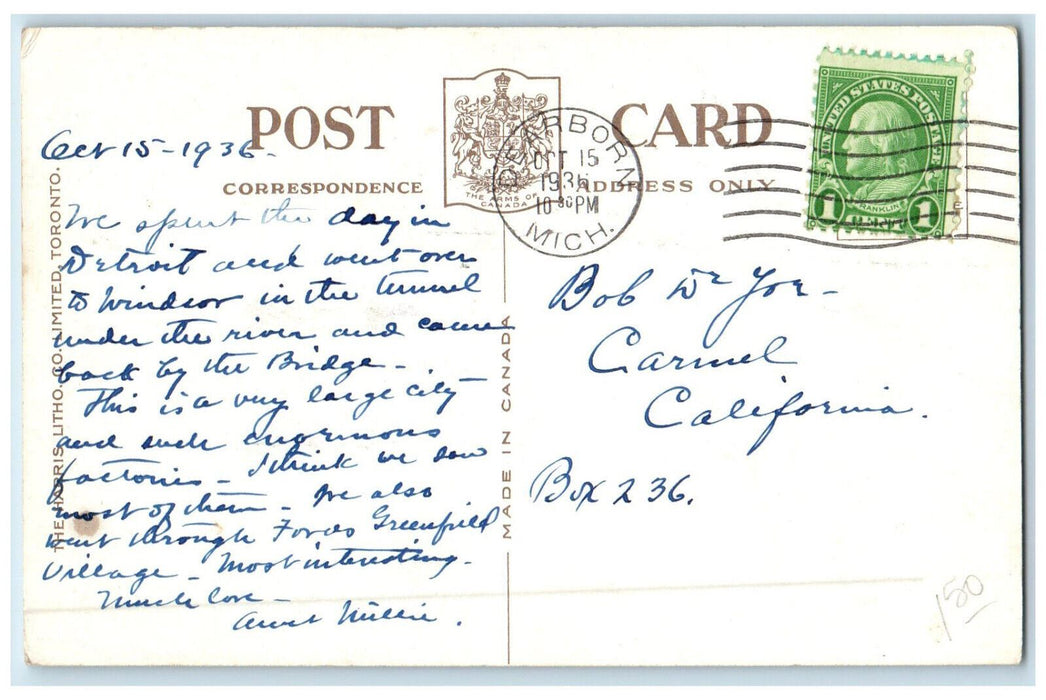 POST CARD
CORRESPONDENCE
ADDRESS ONLY
THE ARMS OF
CANADA
DEARBORN
OCT 15
1936
10 30 PM
MICH.
UNITED STATES POSTAGE
FRANKLIN
1 CENT 1
Oct 15 - 1936 -
We spent the day in
Detroit and went over
to Windsor in the tunnel
under the river and came
back by the Bridge -
This is a very large city
and such enormous
factories - I think we saw
most of them - We also
went through Fords Greenfield
Village - Most interesting.
Much love -
Aunt Millie.
Bob
Carmel
California.
Box 236.
THE HARRIS LITHO. CO. LIMITED, TORONTO.
MADE IN CANADA
150